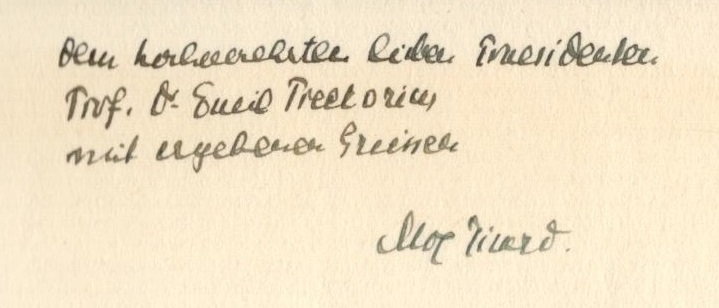 Dem hochverehrten lieben Praesidenten
Prof. Dr. Emil Preetorius
mit ergebenen Grüssen
Max